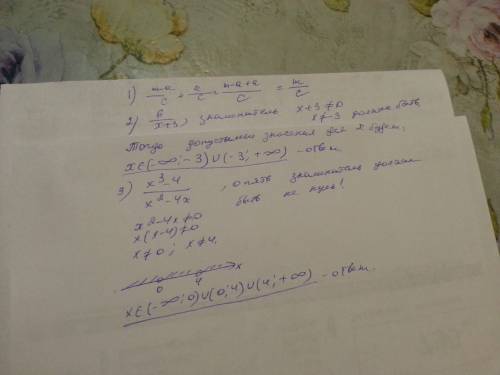 1) (m-a)/c + a/c = (m-a+a)/c = m/c
2) 6/(x+3), знаменатель x+3≠0
x≠-3 должно быть
Тогда допустимые значения для x будет:
x∈(-∞;-3)∪(-3;+∞) - ответ
3) (x³-4)/(x²-4x), опять знаменатель должен
быть не нуль!
x²-4x≠0
x(x-4)≠0
x≠0; x≠4.
0 4 x
x∈(-∞;0)∪(0;4)∪(4;+∞) - ответ.